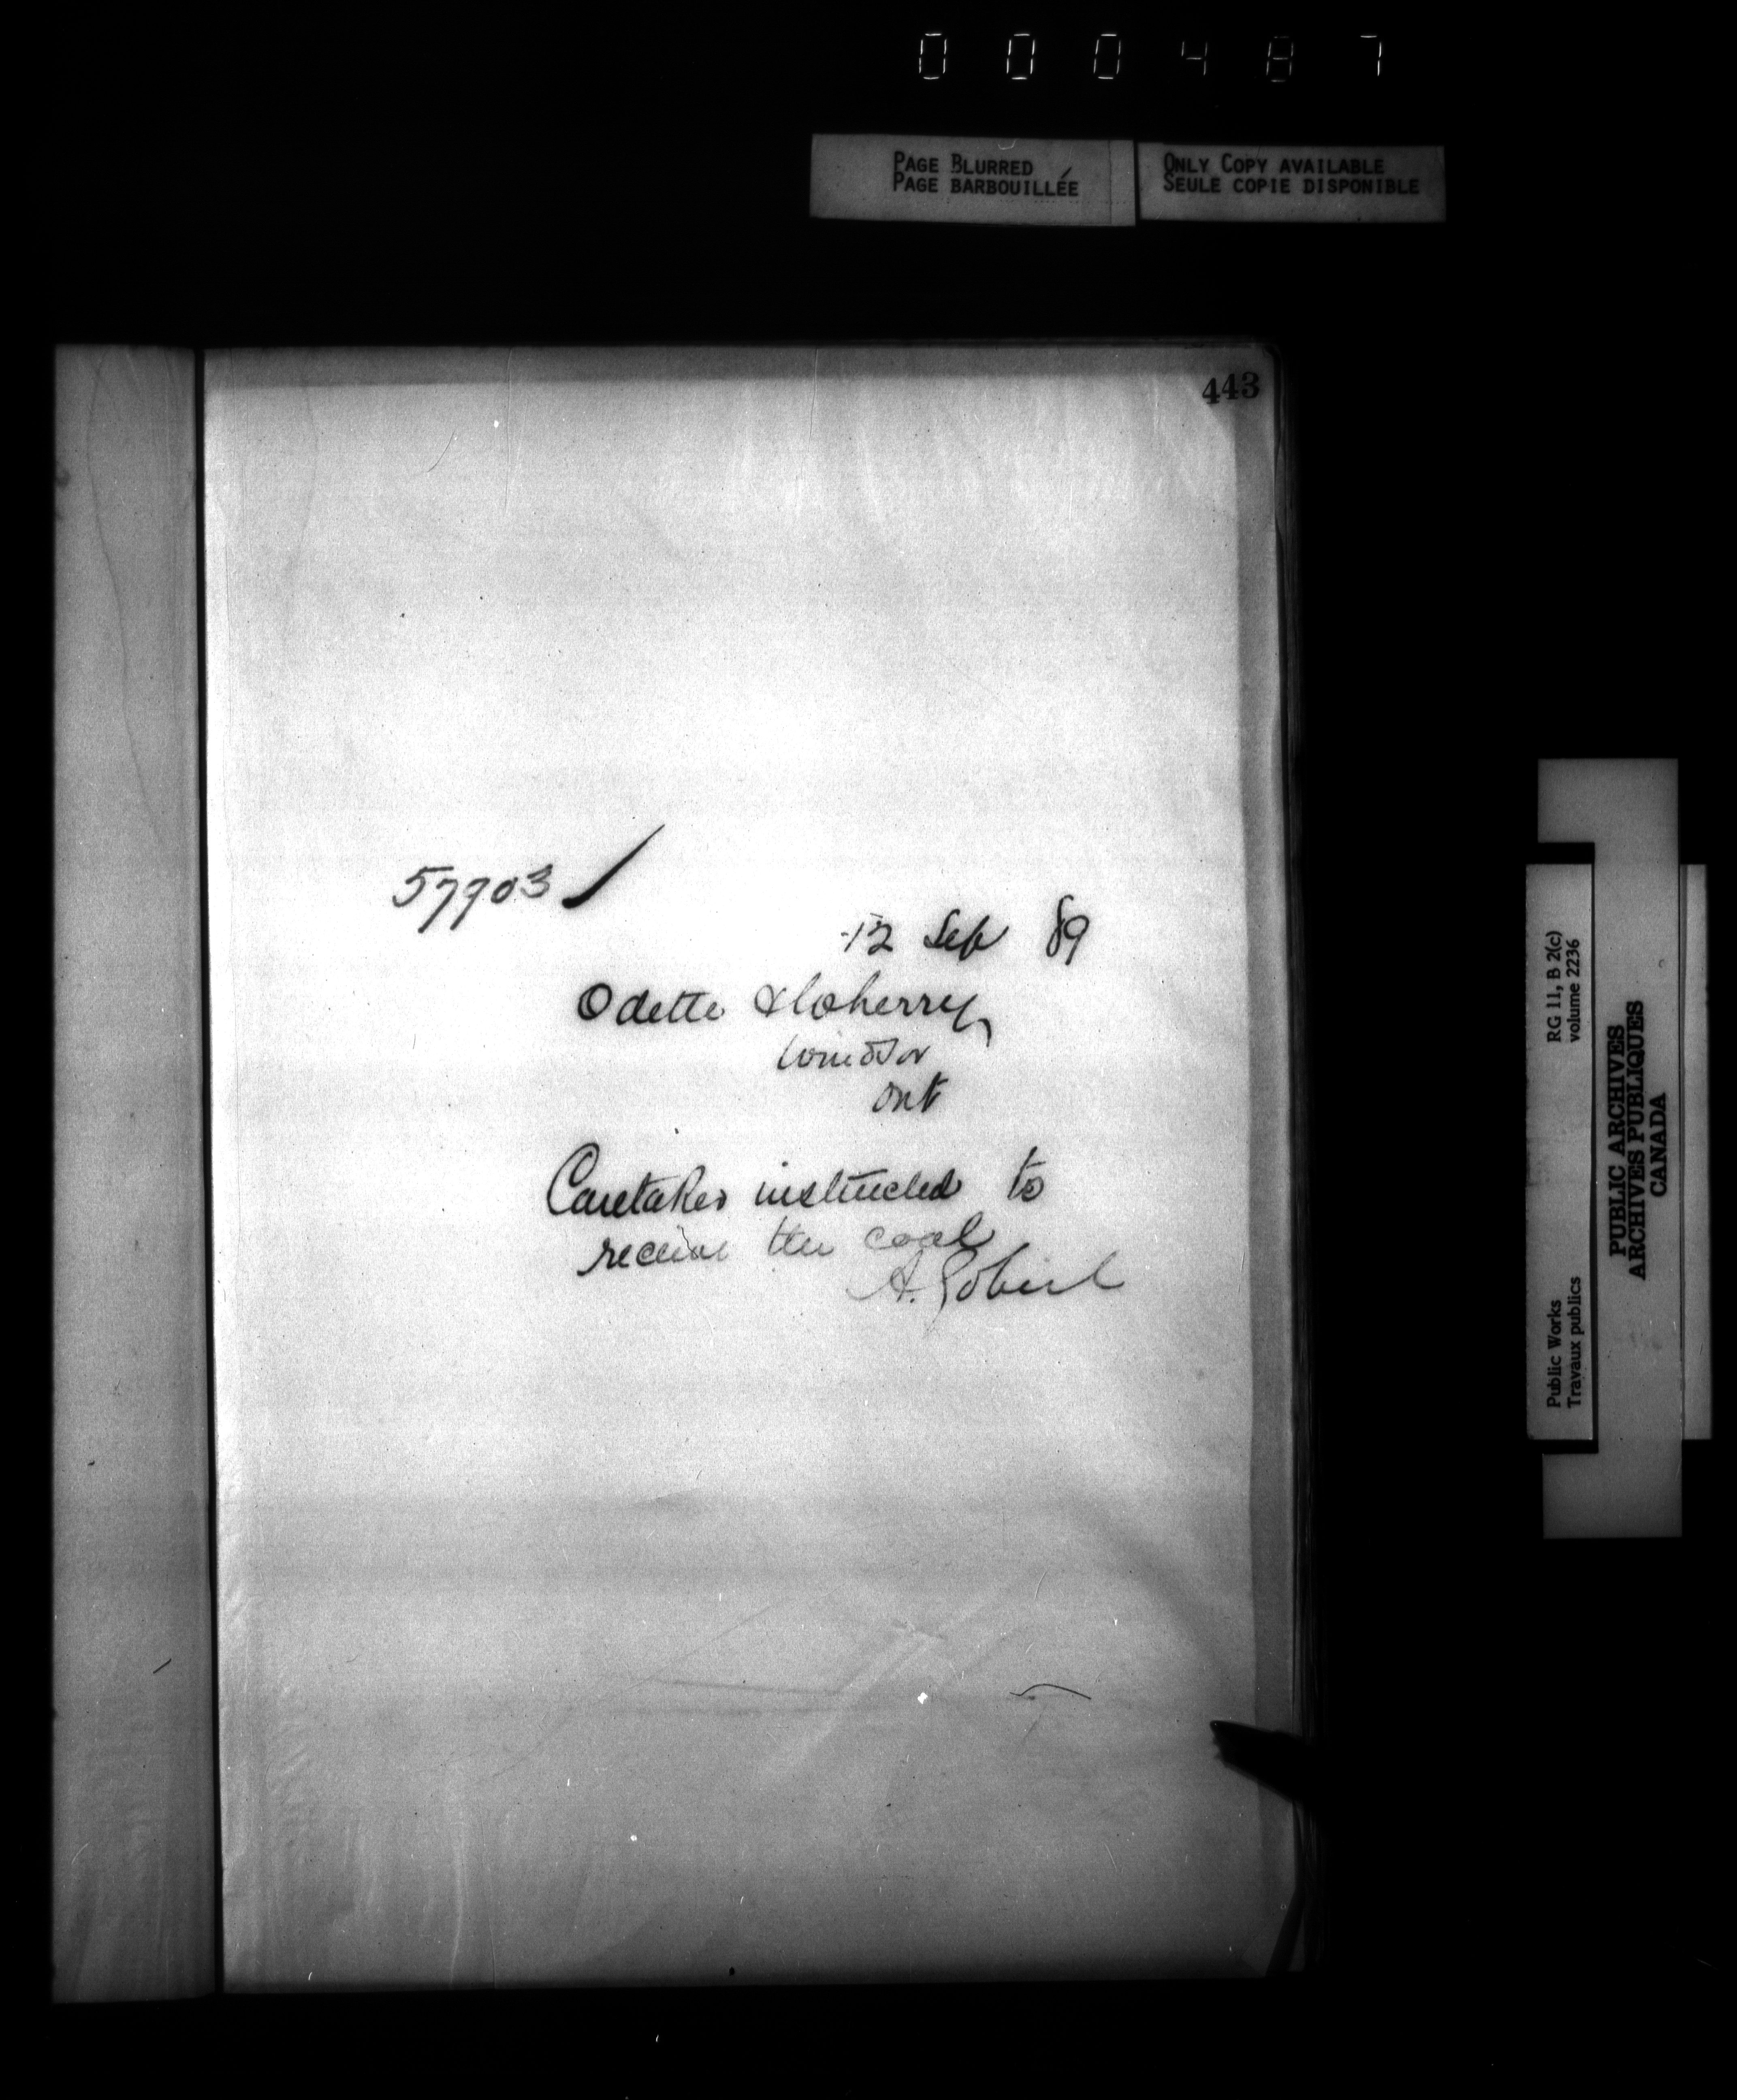 000487
PAGE BLURRED
PAGE BARBOUILLÉE
ONLY COPY AVAILABLE
SEULE COPIE DISPONIBLE
443
57903
12 Sep 89
Odette & Wherry,
Windsor
Ont
Caretaker instructed to
receive the coal
A. Gobeil
RG 11, B 2(c)
volume 2236
Public Works
Travaux publics
PUBLIC ARCHIVES
ARCHIVES PUBLIQUES
CANADA